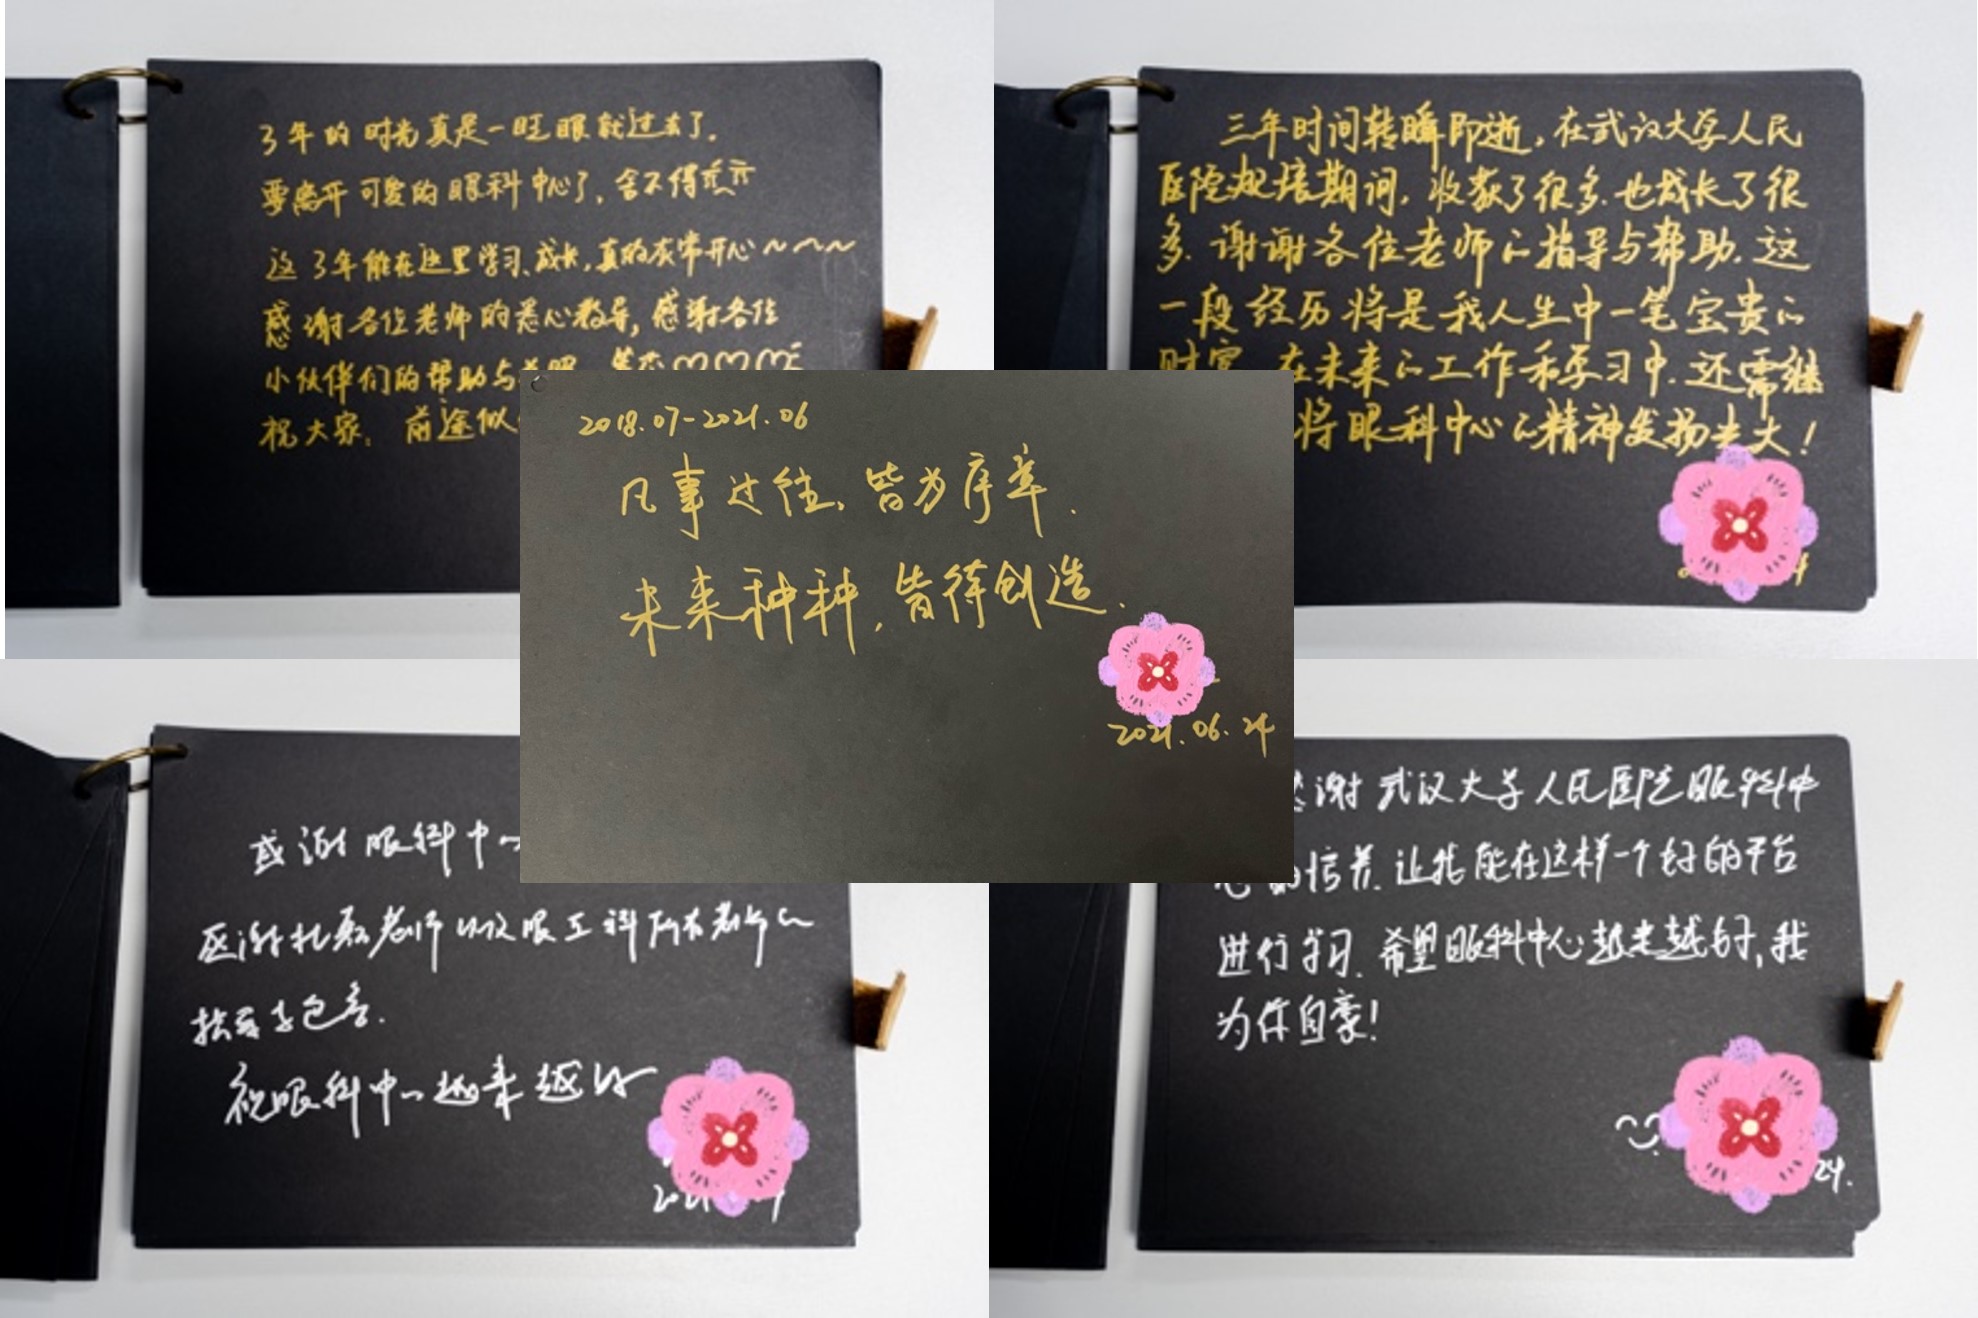 3年的时光真是一眨眼就过去了.
要离开可爱的眼科中心了,舍不得
这3年能在这里学习、成长,真的灰常开心~~~
感谢各位老师的悉心教导,感谢各位
小伙伴们的帮助与
祝大家, 前途似
三年时间转瞬即逝,在武汉大学人民
医院规培期间,收获了很多.也成长了很
多.谢谢各位老师的指导与帮助.这
一段经历将是我人生中一笔宝贵的
财富 在未来的工作和学习中.还需继
将眼科中心的精神发扬光大!
2018.07-2021.06
凡事过往,皆为序章.
未来种种,皆待创造.
2021.06.24
感谢眼科中
感谢 老师以及眼 科所有老师的
包容.
祝眼科中心越来越好
谢武汉大学人民医院眼科中
心的培养.让我能在这样一个好的平台
进行学习.希望眼科中心越来越好,我
为你自豪!
24.